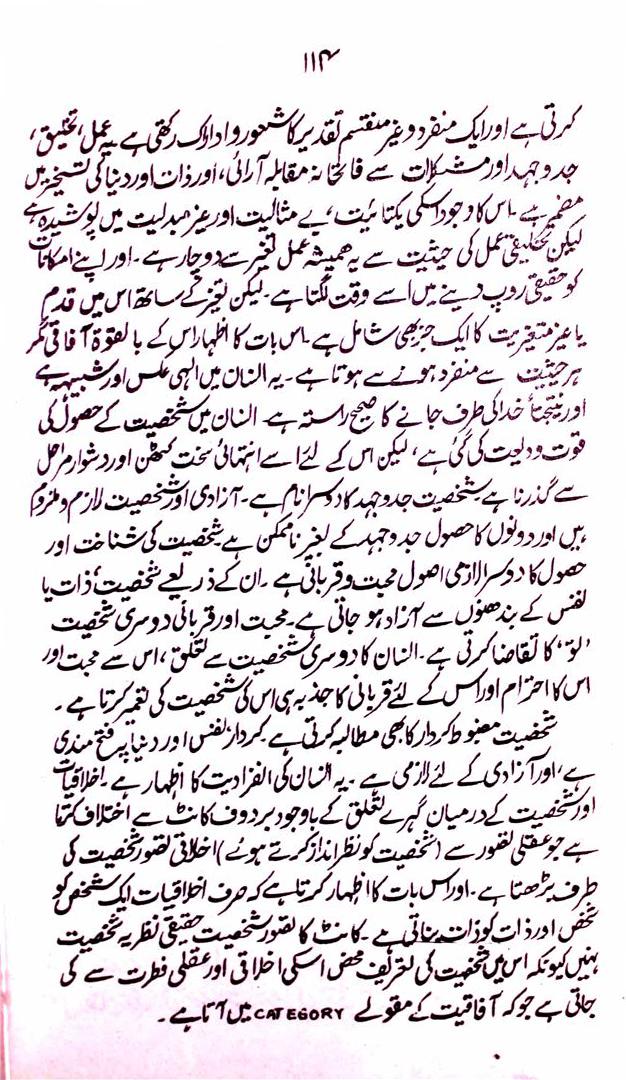 ۱۱۴
کرتی ہے اور ایک منفرد و غیر منقسم تقدیر کا شعور و ادراک رکھتی ہے یہ عمل، تخلیق،
جدوجہد اور مشکلات سے فاتحانہ مقابلہ آرائی، اور ذات اور دنیا کی تسخیر میں
مضمر ہے۔ اس کا وجود اسکی یکتائیت، بے مثالیت اور غیر مبدلیت میں پوشیدہ ہے
لیکن تخلیقی عمل کی حیثیت سے یہ ہمیشہ عمل تغیر سے دوچار ہے۔ اور اپنے امکانات
کو حقیقی روپ دینے میں اسے وقت لگتا ہے۔ لیکن تغیر کے ساتھ اس میں قدم
یا غیر متغیریت کا ایک جز بھی شامل ہے۔ اس بات کا اظہار اس کے بالقوۃ آفاقی مگر
ہر حیثیت سے منفرد ہونے سے ہوتا ہے۔ یہ انسان میں الہی عکس اور شبیہہ ہے
اور نتیجتاً خدا کی طرف جانے کا صحیح راستہ ہے۔ انسان میں شخصیت کے حصول کی
قوت ودیعت کی گئی ہے، لیکن اس کے لئے اسے انتہائی سخت کٹھن اور دشوار مراحل
سے گذرنا ہے۔ شخصیت جدوجہد کا دوسرا نام ہے۔ آزادی اور شخصیت لازم و ملزوم
ہیں اور دونوں کا حصول جدوجہد کے بغیر ناممکن ہے۔ شخصیت کی شناخت اور
حصول کا دوسرا لازمی اصول محبت و قربانی ہے۔ ان کے ذریعے شخصیت، ذات یا
نفس کے بندھنوں سے آزاد ہو جاتی ہے۔ محبت اور قربانی دوسری شخصیت
'تو' کا تقاضا کرتی ہے۔ انسان کا دوسری شخصیت سے تعلق، اس سے محبت اور
اس کا احترام اور اس کے لئے قربانی کا جذبہ ہی اس کی شخصیت کی تعمیر کرتا ہے۔
شخصیت مضبوط کردار کا بھی مطالبہ کرتی ہے۔ کردار، نفس اور دنیا پر فتح مندی
ہے، اور آزادی کے لئے لازمی ہے۔ یہ انسان کی انفرادیت کا اظہار ہے۔ اخلاقیات
اور شخصیت کے درمیان گہرے تعلق کے باوجود بردوف کانٹ سے اختلاف کرتا
ہے جو عقلی تصور سے (شخصیت کو نظر انداز کرتے ہوئے) اخلاقی تصور شخصیت کی
طرف بڑھتا ہے۔ اور اس بات کا اظہار کرتا ہے کہ صرف اخلاقیات ایک شخص کو
شخص اور ذات کو ذات بناتی ہے۔ کانٹ کا تصور شخصیت حقیقی نظریہ شخصیت
نہیں کیونکہ اس میں شخصیت کی تعریف محض اسکی اخلاقی اور عقلی فطرت سے کی
جاتی ہے جو کہ آفاقیت کے مقولے CATEGORY میں آتا ہے۔